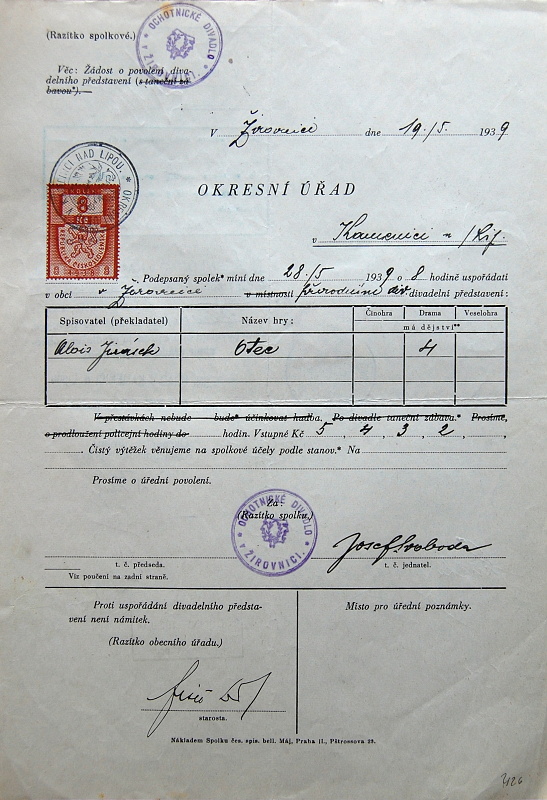 (Razítko spolkové.)
OCHOTNICKÉ DIVADLO
V ŽIROVNICI.
Věc: Žádost o povolení diva-
delního představení (s taneční zá-
bavou*).—
V Žirovnici dne 19./5. 1939
NICI NAD LIPOU. * OK
OKRESNÍ ÚŘAD
8
Kč
8 8
v Kamenici n/Lip.
Podepsaný spolek* míní dne 28./5 1939 o 8 hodině uspořádati
v obci v Žirovnici v místnosti přírodním div. divadelní představení:
Spisovatel (překladatel) Název hry: Činohra Drama Veselohra
má dějství**
Alois Jirásek Otec 4
V přestávkách nebude bude* účinkovat hudba. Po divadle taneční zábava.* Prosíme,
o prodloužení policejní hodiny do hodin. Vstupné Kč 5, 4, 3, 2,
Čistý výtěžek věnujeme na spolkové účely podle stanov.* Na
Prosíme o úřední povolení.
Za:
(Razítko spolku.)
OCHOTNICKÉ DIVADLO
V ŽIROVNICI.
Josef Svoboda
t. č. předseda. t. č. jednatel.
Viz poučení na zadní straně.
Proti uspořádání divadelního předsta-
vení není námitek.
Místo pro úřední poznámky.
(Razítko obecního úřadu.)
starosta.
Nákladem Spolku čes. spis. bell. Máj, Praha II., Pštrossova 29.